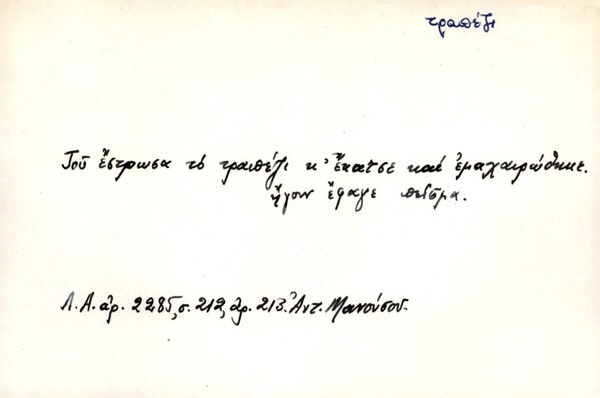 τραπέζι
Τοῦ ἔστρωσα τό τραπέζι κ' ἔκατσε καί ἐμαχαιρώθηκε.
ἤγουν ἔφαγε πεῖσμα.
Λ.Α. ἀρ. 2285, σ. 212, ἀρ. 213. Ἀντ. Μανούσου.